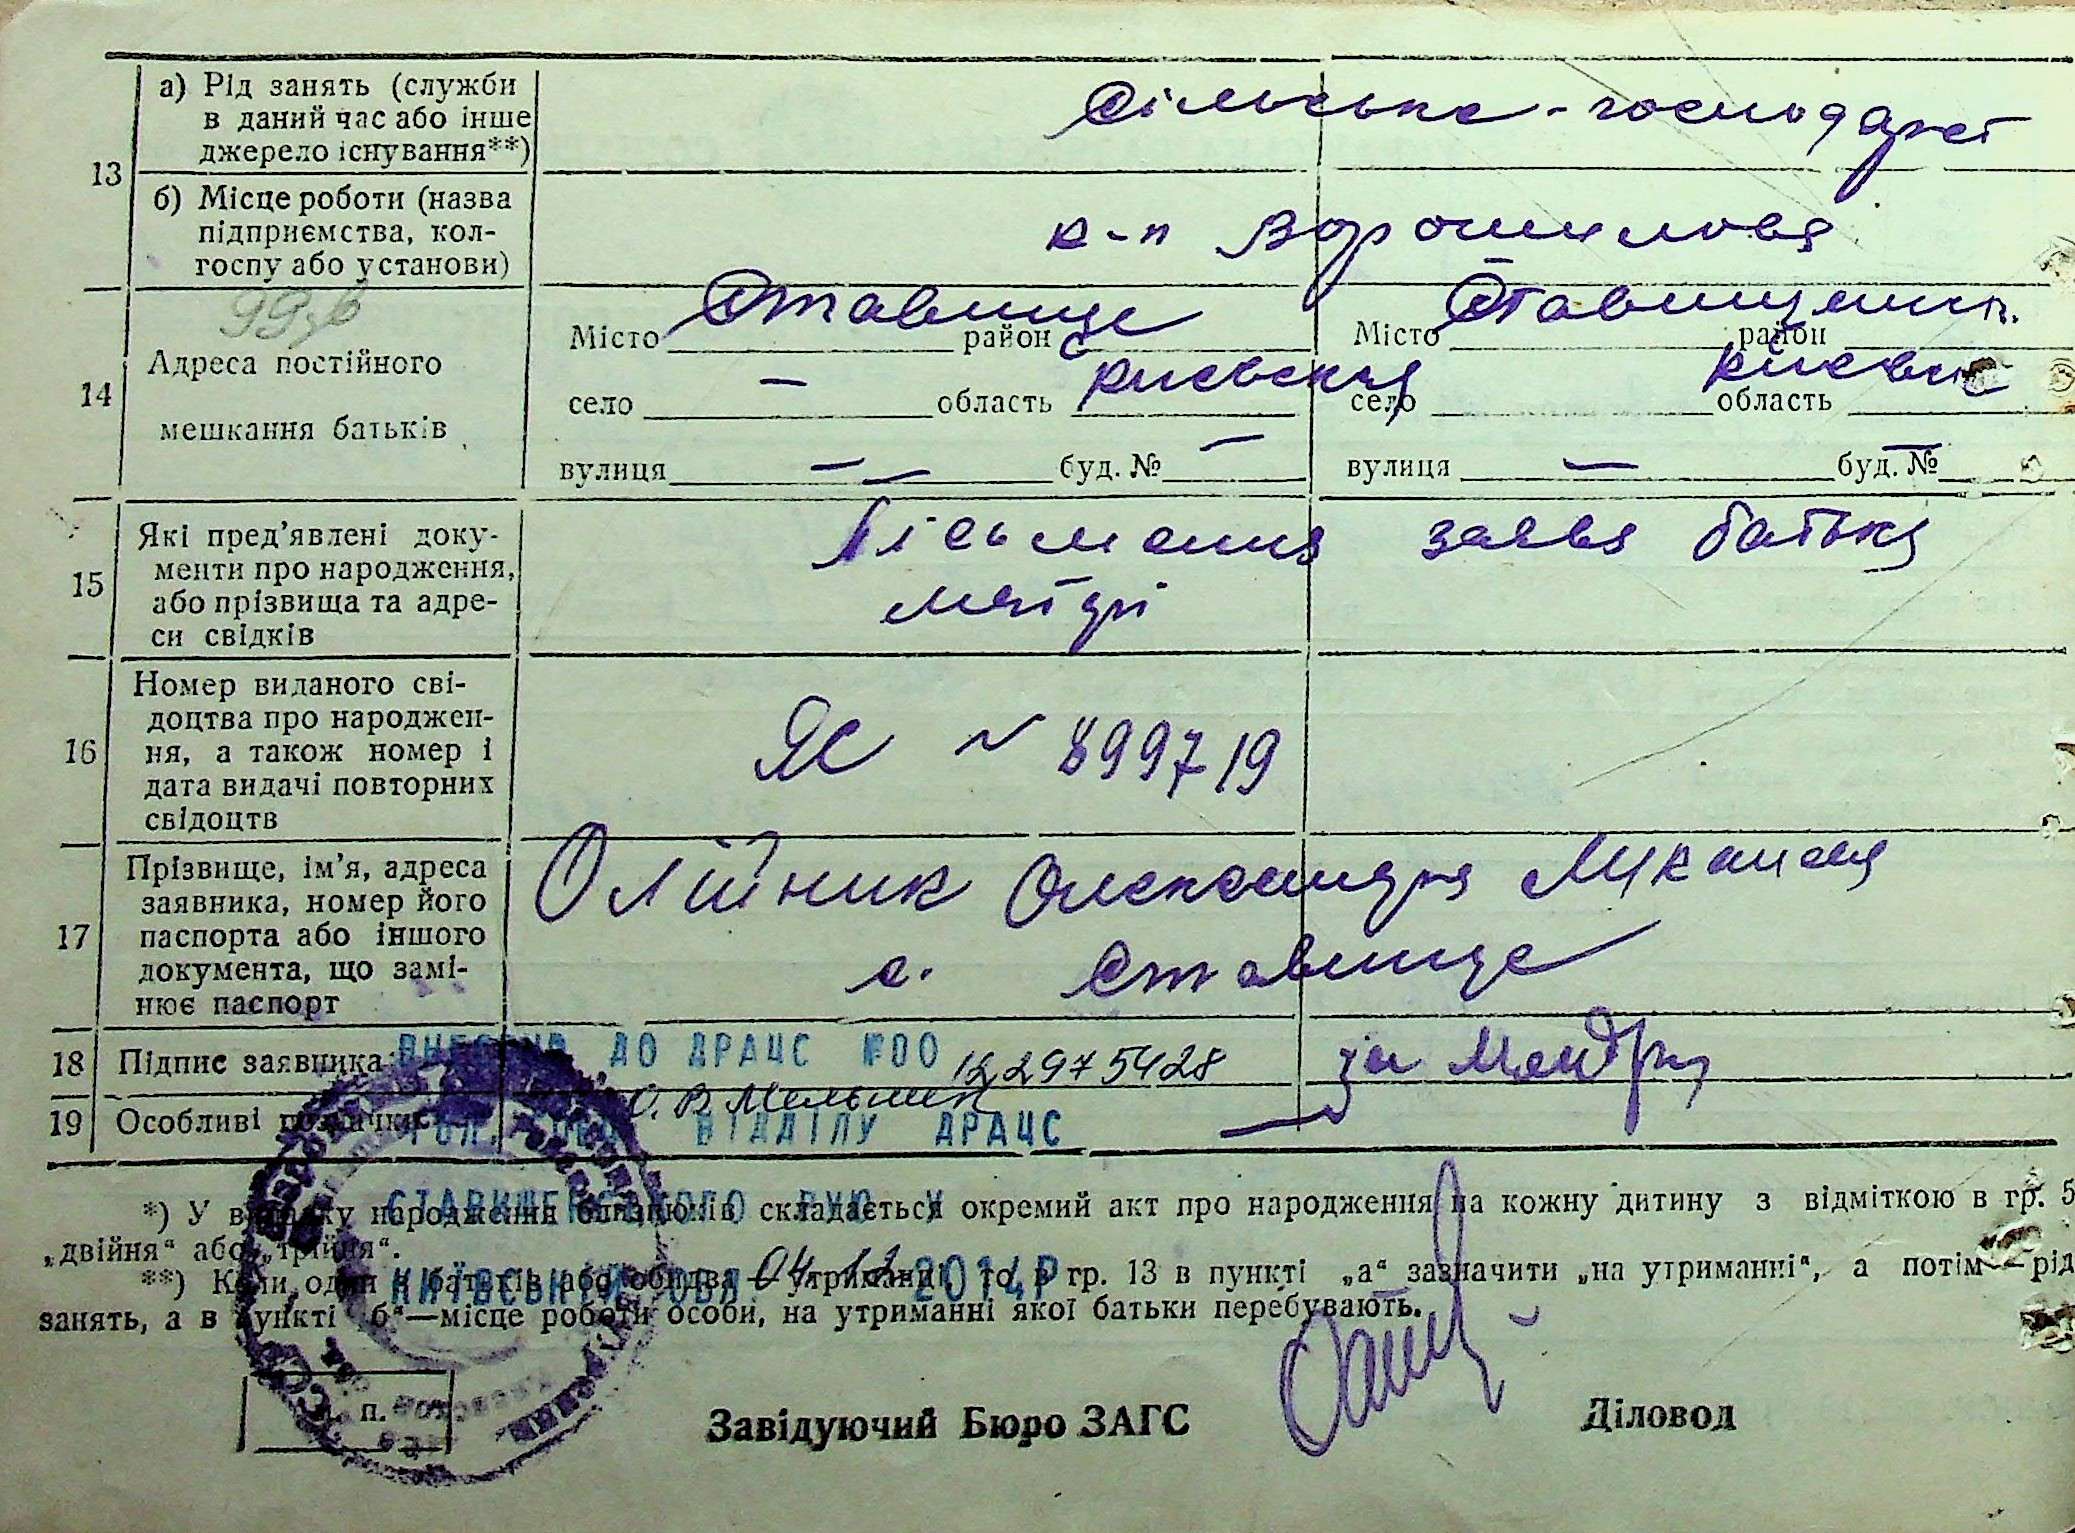 13
а) Рід занять (служби
в даний час або інше
джерело існування**)
Сільське-господарст
б) Місце роботи (назва
підприємства, кол-
госпу або установи)
к-п Ворошилова
14
Адреса постійного
мешкання батьків
Ставище Ставищенськ.
Місто район Місто район
— Киевская Киевск
село область село область
вулиця — буд. № — вулиця — буд. № —
15
Які пред’явлені доку-
менти про народження,
або прізвища та адре-
си свідків
Письменна заява батька
матері
16
Номер виданого сві-
доцтва про народжен-
ня, а також номер і
дата видачі повторних
свідоцтв
ЯС № 899719
17
Прізвище, ім’я, адреса
заявника, номер його
паспорта або іншого
документа, що замі-
нює паспорт
Олійник Олександра
с. Ставище
18 Підпис заявника
ВНЕСЕНО ДО ДРАЦС №00 122975428
за
О. В. Мельник
19 Особливі
ВІДДІЛУ ДРАЦС
СТАВИЩЕНСЬКОГО РУЮ У
КИЇВСЬКІЙ ОБЛ. 04 12 2014Р
*) У випадку народження близнюків, складається окремий акт про народження на кожну дитину з відміткою в гр. 5
„двійня“ або „трійня“.
**) Коли один з батьків або обидва — утриманці, то в гр. 13 в пункті „а“ зазначити „на утриманні“, а потім — рід
занять, а в пункті „б“—місце роботи особи, на утриманні якої батьки перебувають.
п.
Завідуючий Бюро ЗАГС Діловод